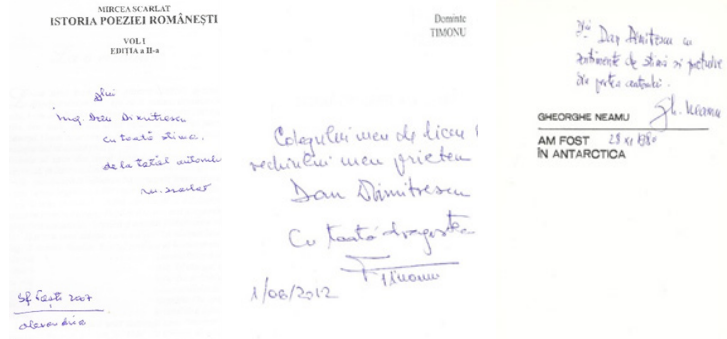 MIRCEA SCARLAT
ISTORIA POEZIEI ROMÂNEŞTI
VOL I
EDITIA a II-a
Dlui
Ing. Dan Dimitrescu
cu toată stima.
de la tatăl autorului
m. scarlat
Sf Paşti 2007
alexandria
Dominte
TIMONU
Colegului meu de liceu
vechiului meu prieten
Dan Dimitrescu
Cu toată dragostea
Timonu
1/06/2012
Dlui Dan Dimitrescu cu
sentimente de stimă si pretuire
din partea autorului.
Gh. Neamu
GHEORGHE NEAMU
AM FOST
ÎN ANTARCTICA